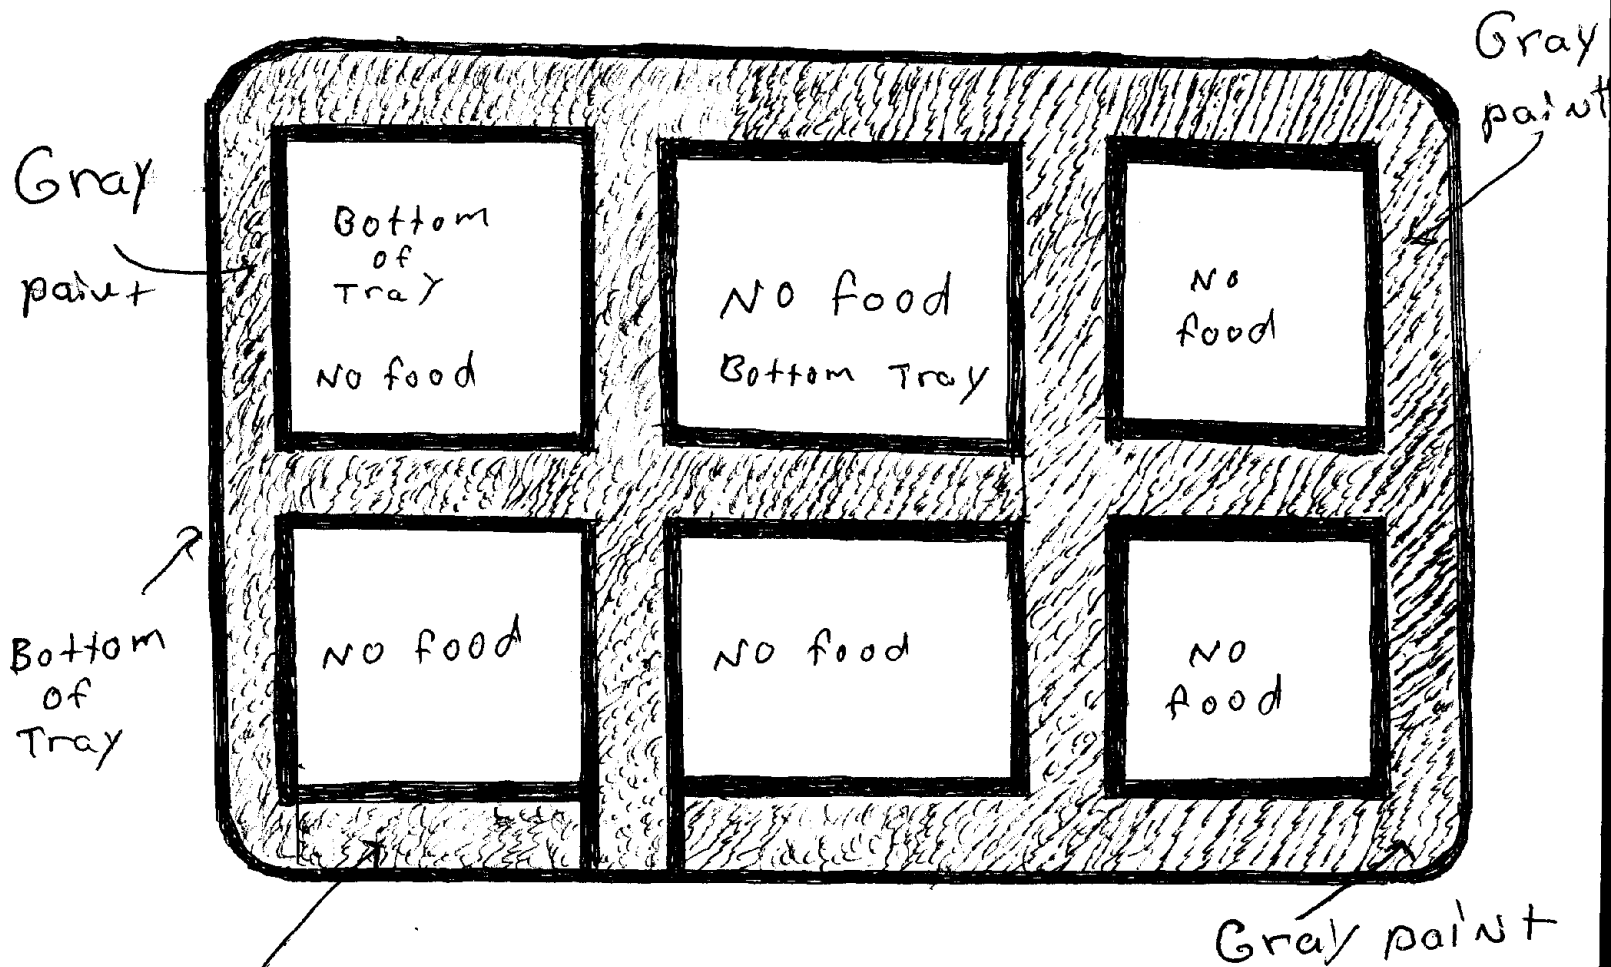 Gray
paint
Gray
paint
Bottom
of
Tray
No food
No food
Bottom Tray
No
food
Bottom
of
Tray
No food
No food
No
food
Gray paint